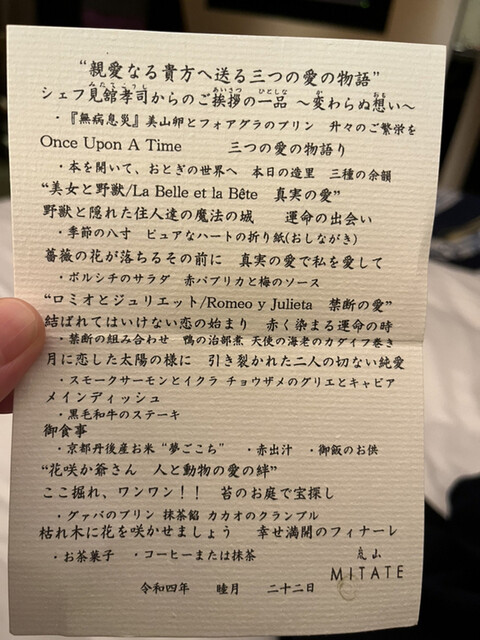 “親愛なる貴方へ送る三つの愛の物語”
シェフ見舘孝司からのご挨拶の一品 ～変わらぬ想い～
・『無病息災』美山卵とフォアグラのプリン 升々のご繁栄を
Once Upon A Time 三つの愛の物語り
・本を開いて、おとぎの世界へ 本日の造里 三種の余韻
“美女と野獣/La Belle et la Bête 真実の愛”
野獣と隠れた住人達の魔法の城 運命の出会い
・季節の八寸 ピュアなハートの折り紙(おしながき)
薔薇の花が落ちるその前に 真実の愛で私を愛して
・ボルシチのサラダ 赤パプリカと梅のソース
“ロミオとジュリエット/Romeo y Julieta 禁断の愛”
結ばれてはいけない恋の始まり 赤く染まる運命の時
・禁断の組み合わせ 鴨の治部煮 天使の海老のカダイフ巻き
月に恋した太陽の様に 引き裂かれた二人の切ない純愛
・スモークサーモンとイクラ チョウザメのグリエとキャビア
メインディッシュ
・黒毛和牛のステーキ
御食事
・京都丹後産お米“夢ごこち” ・赤出汁 ・御飯のお供
“花咲か爺さん 人と動物の愛の絆”
ここ掘れ、ワンワン！！ 苔のお庭で宝探し
・グァバのプリン 抹茶餡 カカオのクランブル
枯れ木に花を咲かせましょう 幸せ満開のフィナーレ
・お茶菓子 ・コーヒーまたは抹茶
嵐山
MITATE
令和四年 睦月 二十二日